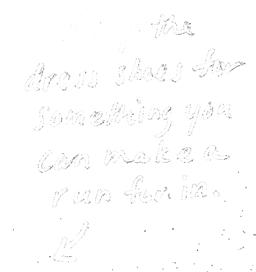 the
dress shoes for
something you
can make a
run for. in.